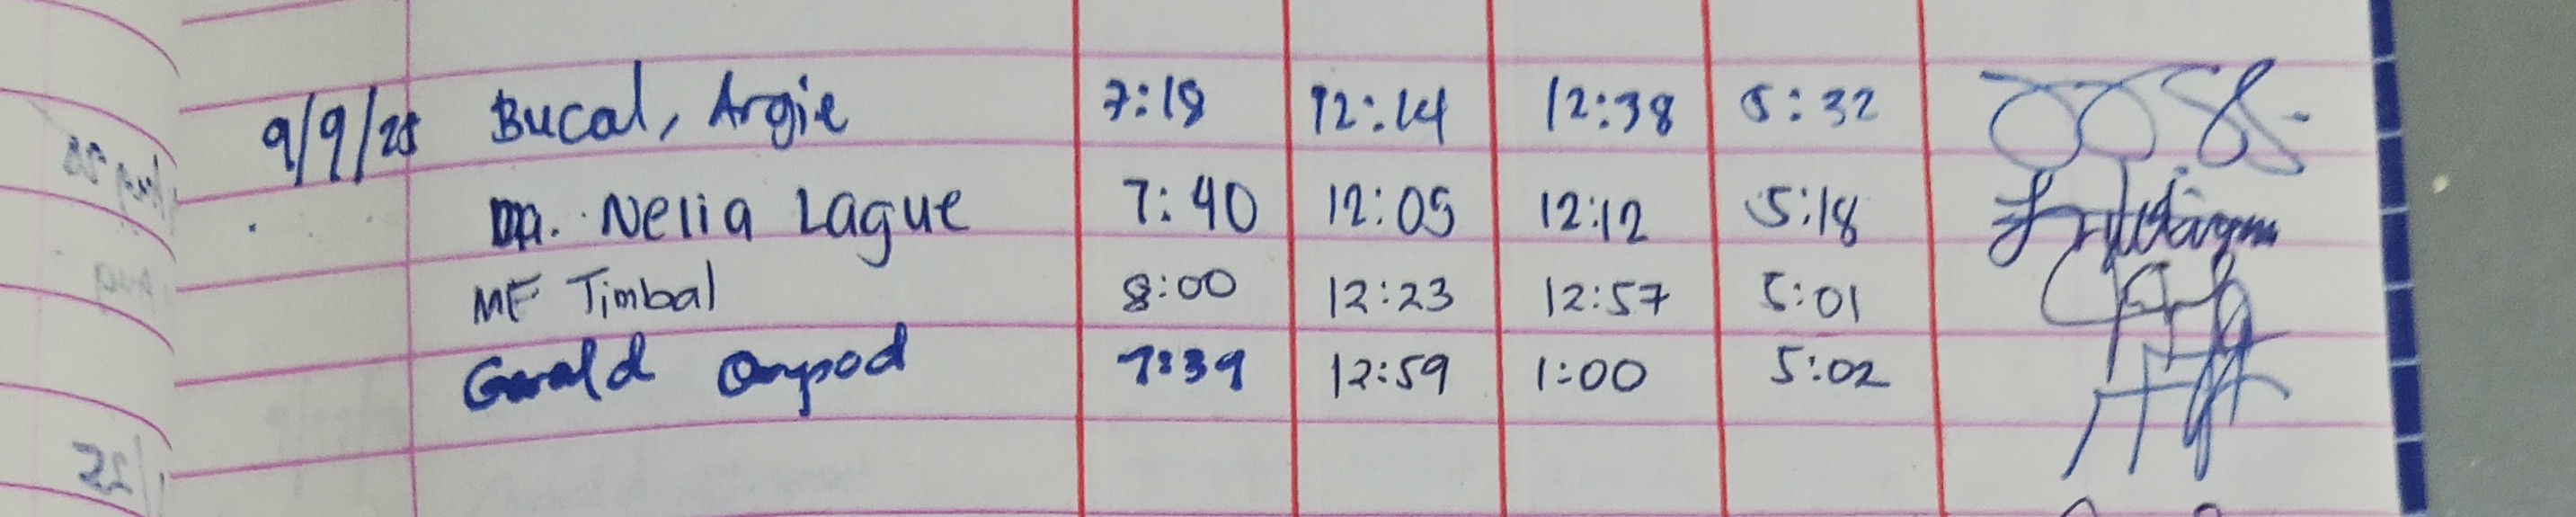 9/9/25 Bucal, Argie 7:18 12:14 12:38 5:32
Ma. Nelia Lague 7:40 12:05 12:12 5:18
MF Timbal 8:00 12:23 12:57 5:01
Gerald 7:39 12:59 1:00 5:02